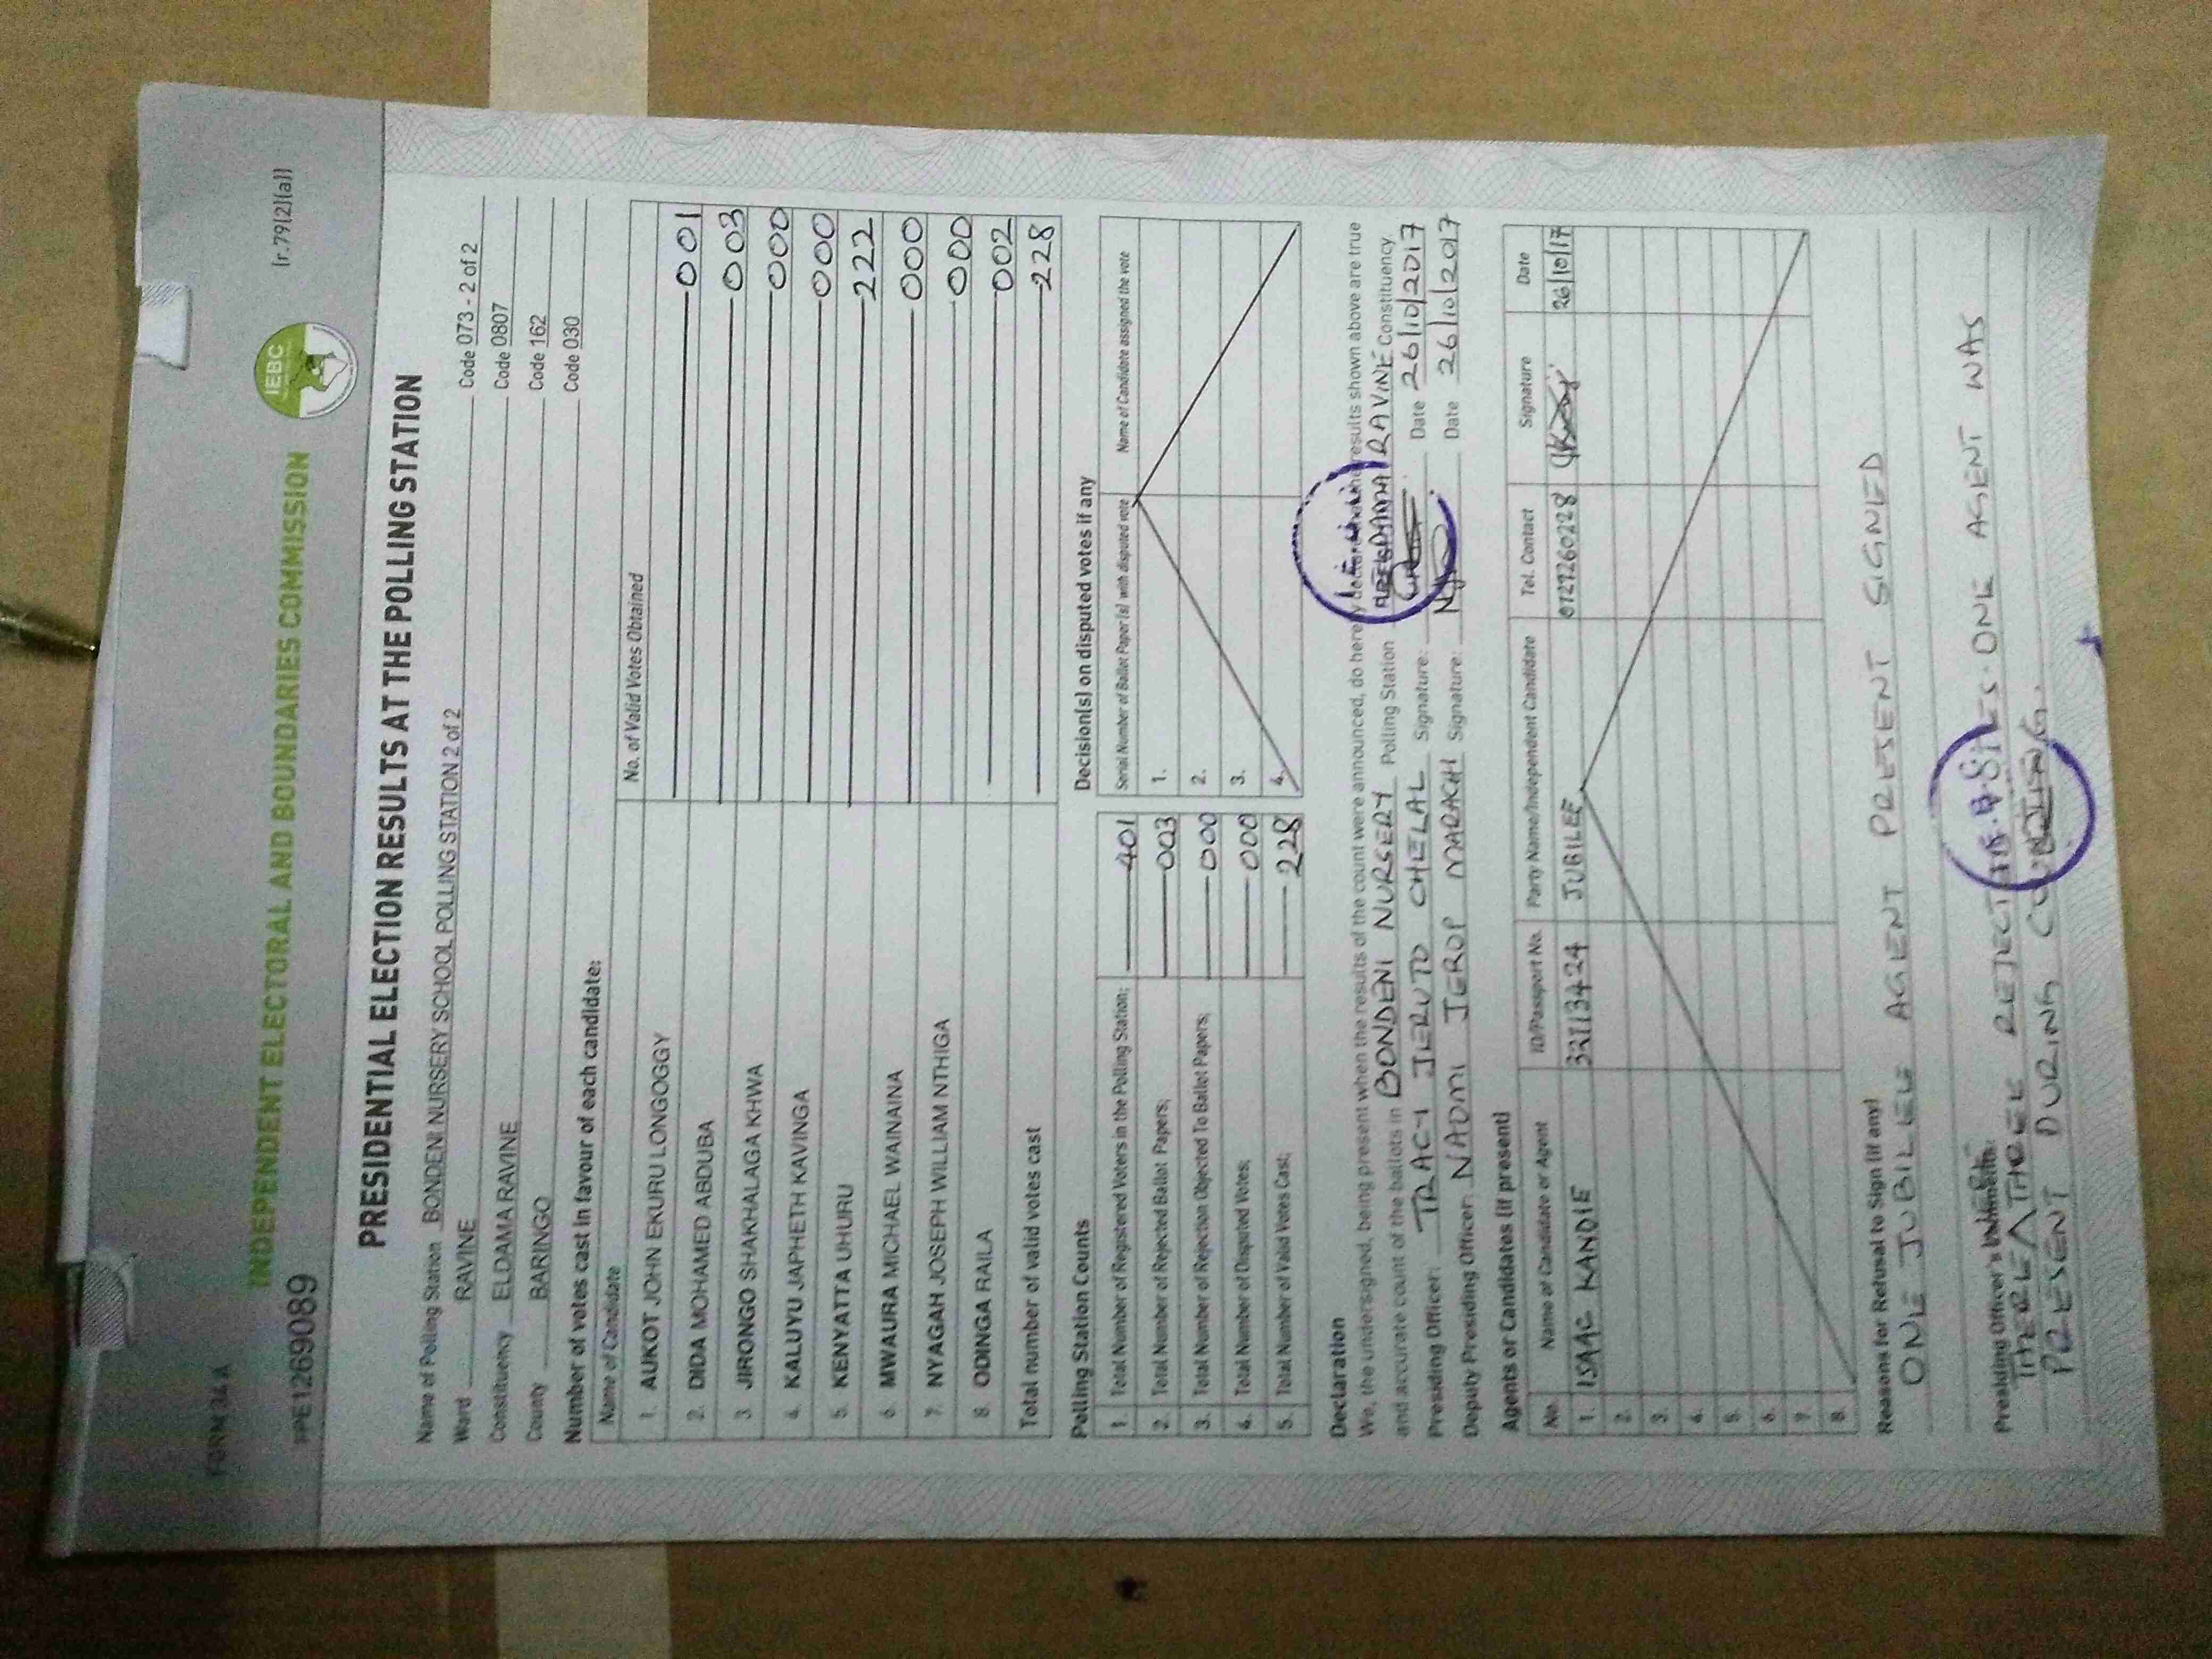 FORM 34 A
(r.79(2)(a))
INDEPENDENT ELECTORAL AND BOUNDARIES COMMISSION
IEBC
PPE1269089
PRESIDENTIAL ELECTION RESULTS AT THE POLLING STATION
Name of Polling Station BONDENI NURSERY SCHOOL POLLING STATION 2 of 2 Code 073 - 2 of 2
Ward RAVINE Code 0807
Constituency ELDAMA RAVINE Code 162
County BARINGO Code 030
Number of votes cast in favour of each candidate:
Name of Candidate No. of Valid Votes Obtained
1. AUKOT JOHN EKURU LONGOGGY 001
2. DIDA MOHAMED ABDUBA 003
3. JIRONGO SHAKHALAGA KHWA 000
4. KALUYU JAPHETH KAVINGA 000
5. KENYATTA UHURU 222
6. MWAURA MICHAEL WAINAINA 000
7. NYAGAH JOSEPH WILLIAM NTHIGA 000
8. ODINGA RAILA 002
Total number of valid votes cast 228
Polling Station Counts
1. Total Number of Registered Voters in the Polling Station; 401
2. Total Number of Rejected Ballot Papers; 003
3. Total Number of Rejection Objected To Ballot Papers; 000
4. Total Number of Disputed Votes; 000
5. Total Number of Valid Votes Cast; 228
Decision(s) on disputed votes if any
Serial Number of Ballot Paper(s) with disputed vote Name of Candidate assigned the vote
1.
2.
3.
4.
Declaration
We, the undersigned, being present when the results of the count were announced, do hereby declare that the results shown above are true
and accurate count of the ballots in BONDENI NURSERY Polling Station ELDAMA RAVINE Constituency
Presiding Officer: TRACY JERUTO CHELAL Signature: Date 26/10/2017
Deputy Presiding Officer: NAOMI JEROP MARACHI Signature: Date 26/10/2017
Agents or Candidates (if present)
No. Name of Candidate or Agent ID/Passport No. Party Name/Independent Candidate Tel. Contact Signature Date
1. ISAAC KANDIE 32113424 JUBILEE 0727260228 26/10/17
2.
3.
4.
5.
6.
7.
8.
Reasons for Refusal to Sign (if any)
ONE JUBILEE AGENT PRESENT SIGNED
Presiding Officer's
THREE REJECTED ONE AGENT WAS
PRESENT DURING COUNTING.